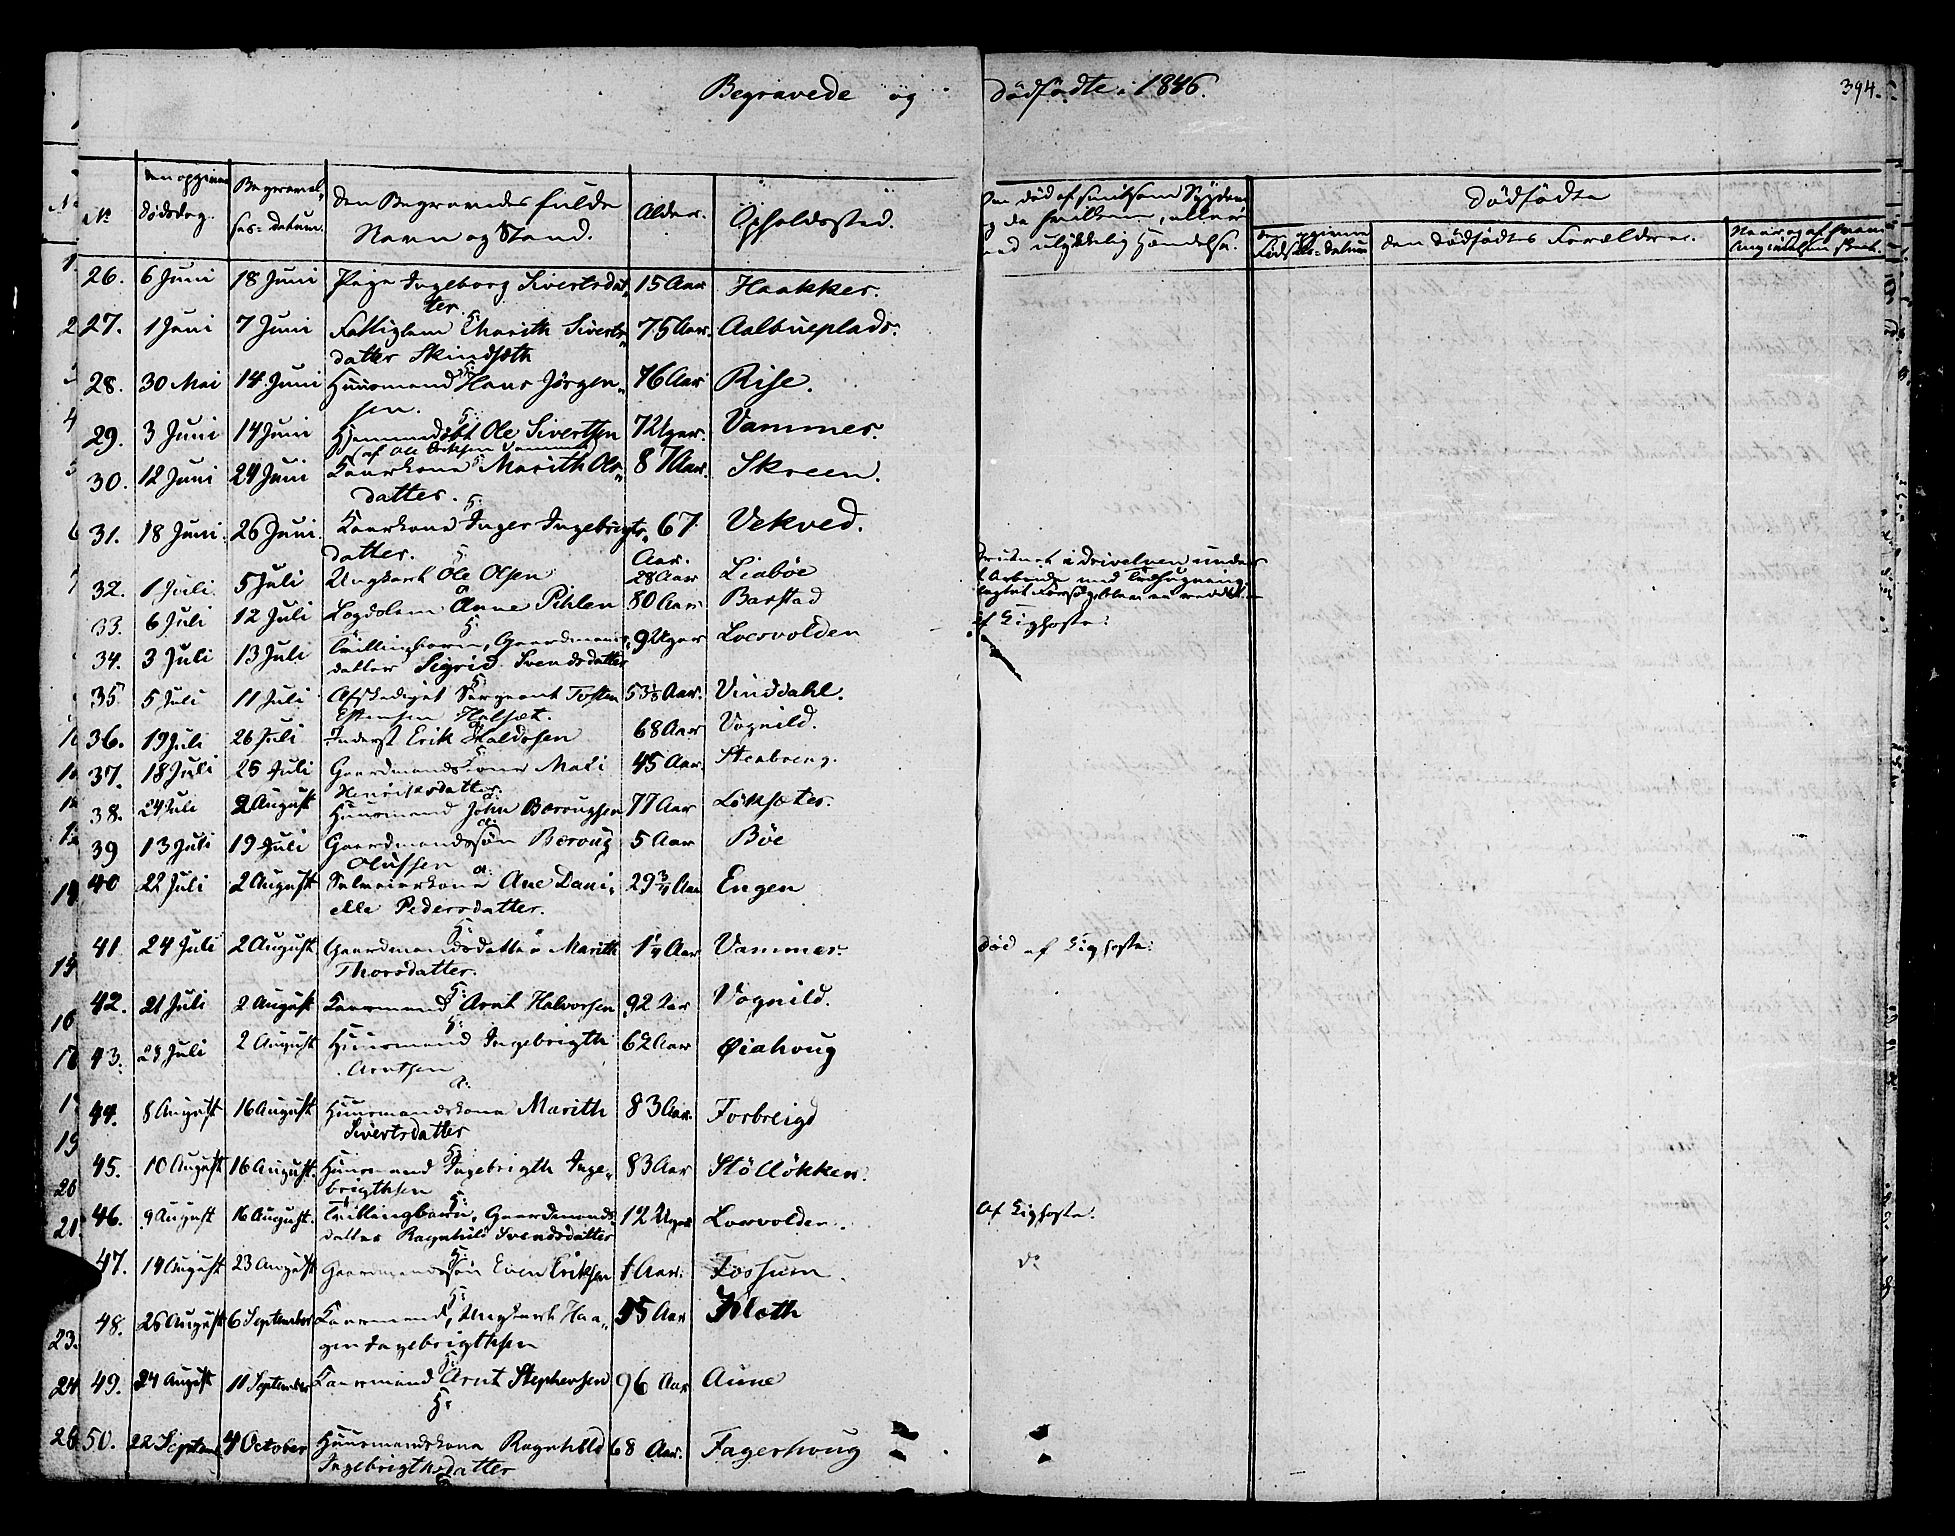 Begravede og dödfödte i 1846.
394.
No
den opgivne Dödsdag.
Begravelses-datum.
den Begravedes fulde Navn og Stand.
Alder.
Opholdssted.
død af smitsom Sygdom
og da hvilken, eller
ved ulykkelig Hændelse.
Dödfödte
den opgivne Födsels-datum
den Dödfödtes Forældre.
26. 6 Juni 18 Juni Pige Ingeborg Sivertsdat-
ter 15 Aar Haakker.
27. 1 Juni 7 Juni Fattiglem Marith Siverts-
datter Skindsæth 75 Aar. Aalbueplads.
28. 30 Mai 14 Juni Huusmand Hans Jörgen-
sen. 76 Aar Rise.
29. 3 Juni 14 Juni Hjemmedøbt Ole Sivertsen
(af Ole Eriksen Vammer) 7 Uger. Vammer.
30. 12 Juni 24 Juni Kaarkone Marith Ols-
datter. 87 Aar. Skreen.
31. 18 Juni. 26 Juni. Kaarkone Inger Ingebrigts-
datter. 67 Aar. Vekved.
32. 1 Juli. 5 Juli Ungkarl Ole Olsen 28 Aar Liabøe
druknet i Drivelven under
Arbeide med Tødflødning
33. 6 Juli 12 Juli Lægdslem Anne Pihlen 80 Aar Barstad
34. 3 Juli 13 Juli Tvillingbarn, Gaardmands-
datter Sigrid Svendsdatter 9 Uger Loesvolden
af Kighoste.
35. 5 Juli 11 Juli Afskediget Sergeant Tosten
Estensen Halsæt. 53 1/2 Aar. Vinddahl.
36. 19 Juli 26 Juli Inderst Erik Haldosen 68 Aar Vognild.
37. 18 Juli 25 Juli Gaardmandskone Mali
Henriksdatter 45 Aar. Stenboeng.
38. 24 Juli 2 August Huusmand John Baroughsen 77 Aar Löksæter.
39 13 Juli 19 Juli Gaardmandssön Baroug
Olufsen 5 Aar Böe
40 22 Juli 2 August Selveierkone Ane Dani-
elle Pedersdatter. 29 3/4 Aar Engen
41 24 Juli 2 August. Gaardmandsdatter Marith
Thorsdatter. 1 1/4 Aar Vammer.
død af Kighoste.
42. 21 Juli 2 August Kaarmand Arnt Halvorsen 92 Aar Vognild.
43. 28 Juli 2 August Huusmand Ingebrigth
Arntsen 62 Aar Øiahoug
44. 8 August 16 August Huusmandskone Marith
Sivertsdatter 83 Aar. Forbreigd
45. 10 August 16 August. Huusmand Ingebrigth Inge-
brigthsen 83 Aar Stölløkken.
46. 9 August 16 August. Tvillingbarn, Gaardmands-
datter Ragnhild Svendsdatter 12 Uger Loesvolden.
Af Kighoste.
47. 14 August 23 August Gaardmandssön Even Eriksen 1 Aar. Fossum.
do
48. 26 August 6 September Kaarmand, Ungkarl Haa-
gen Ingebrigthsen Aar Kleth
49. 24 August 11 September Kaarmand Arnt Stephensen 96 Aar Aune
50. 22 Septemb 4 October Huusmandskone Ragnhild
Ingebrigthsdatter 68 Aar. Fagerhoug